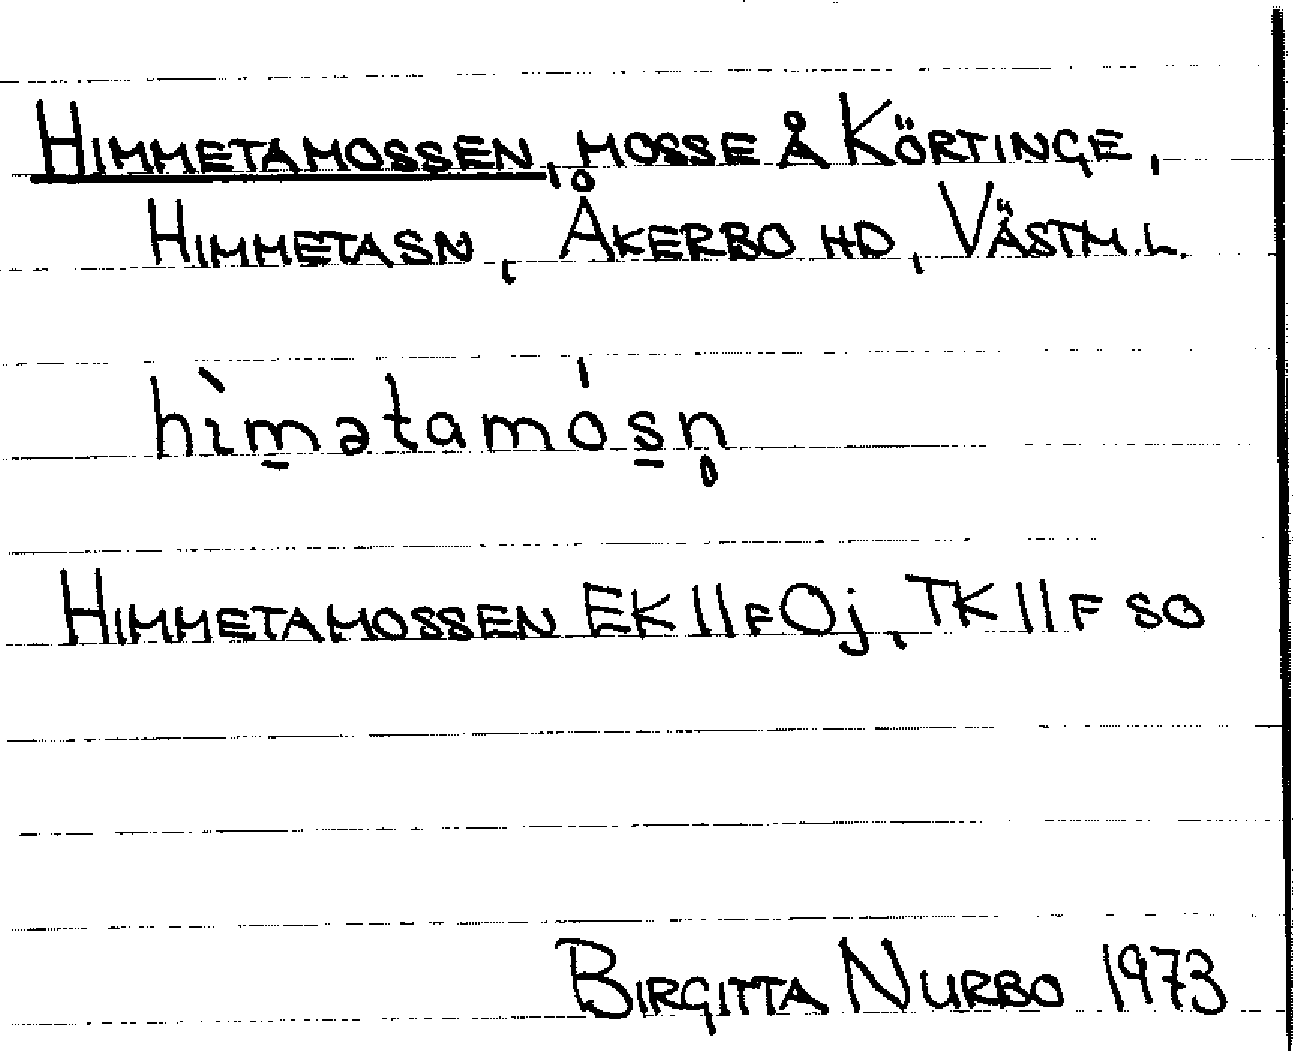 HIMMETAMOSSEN, MOSSE Å KÖRTINGE,
HIMMETASN, ÅKERBO HD, VÄSTM.L.
hìm̱ətamós̱n̥
HIMMETAMOSSEN EK 11F0j, TK 11F SO
BIRGITTA NURBO 1973